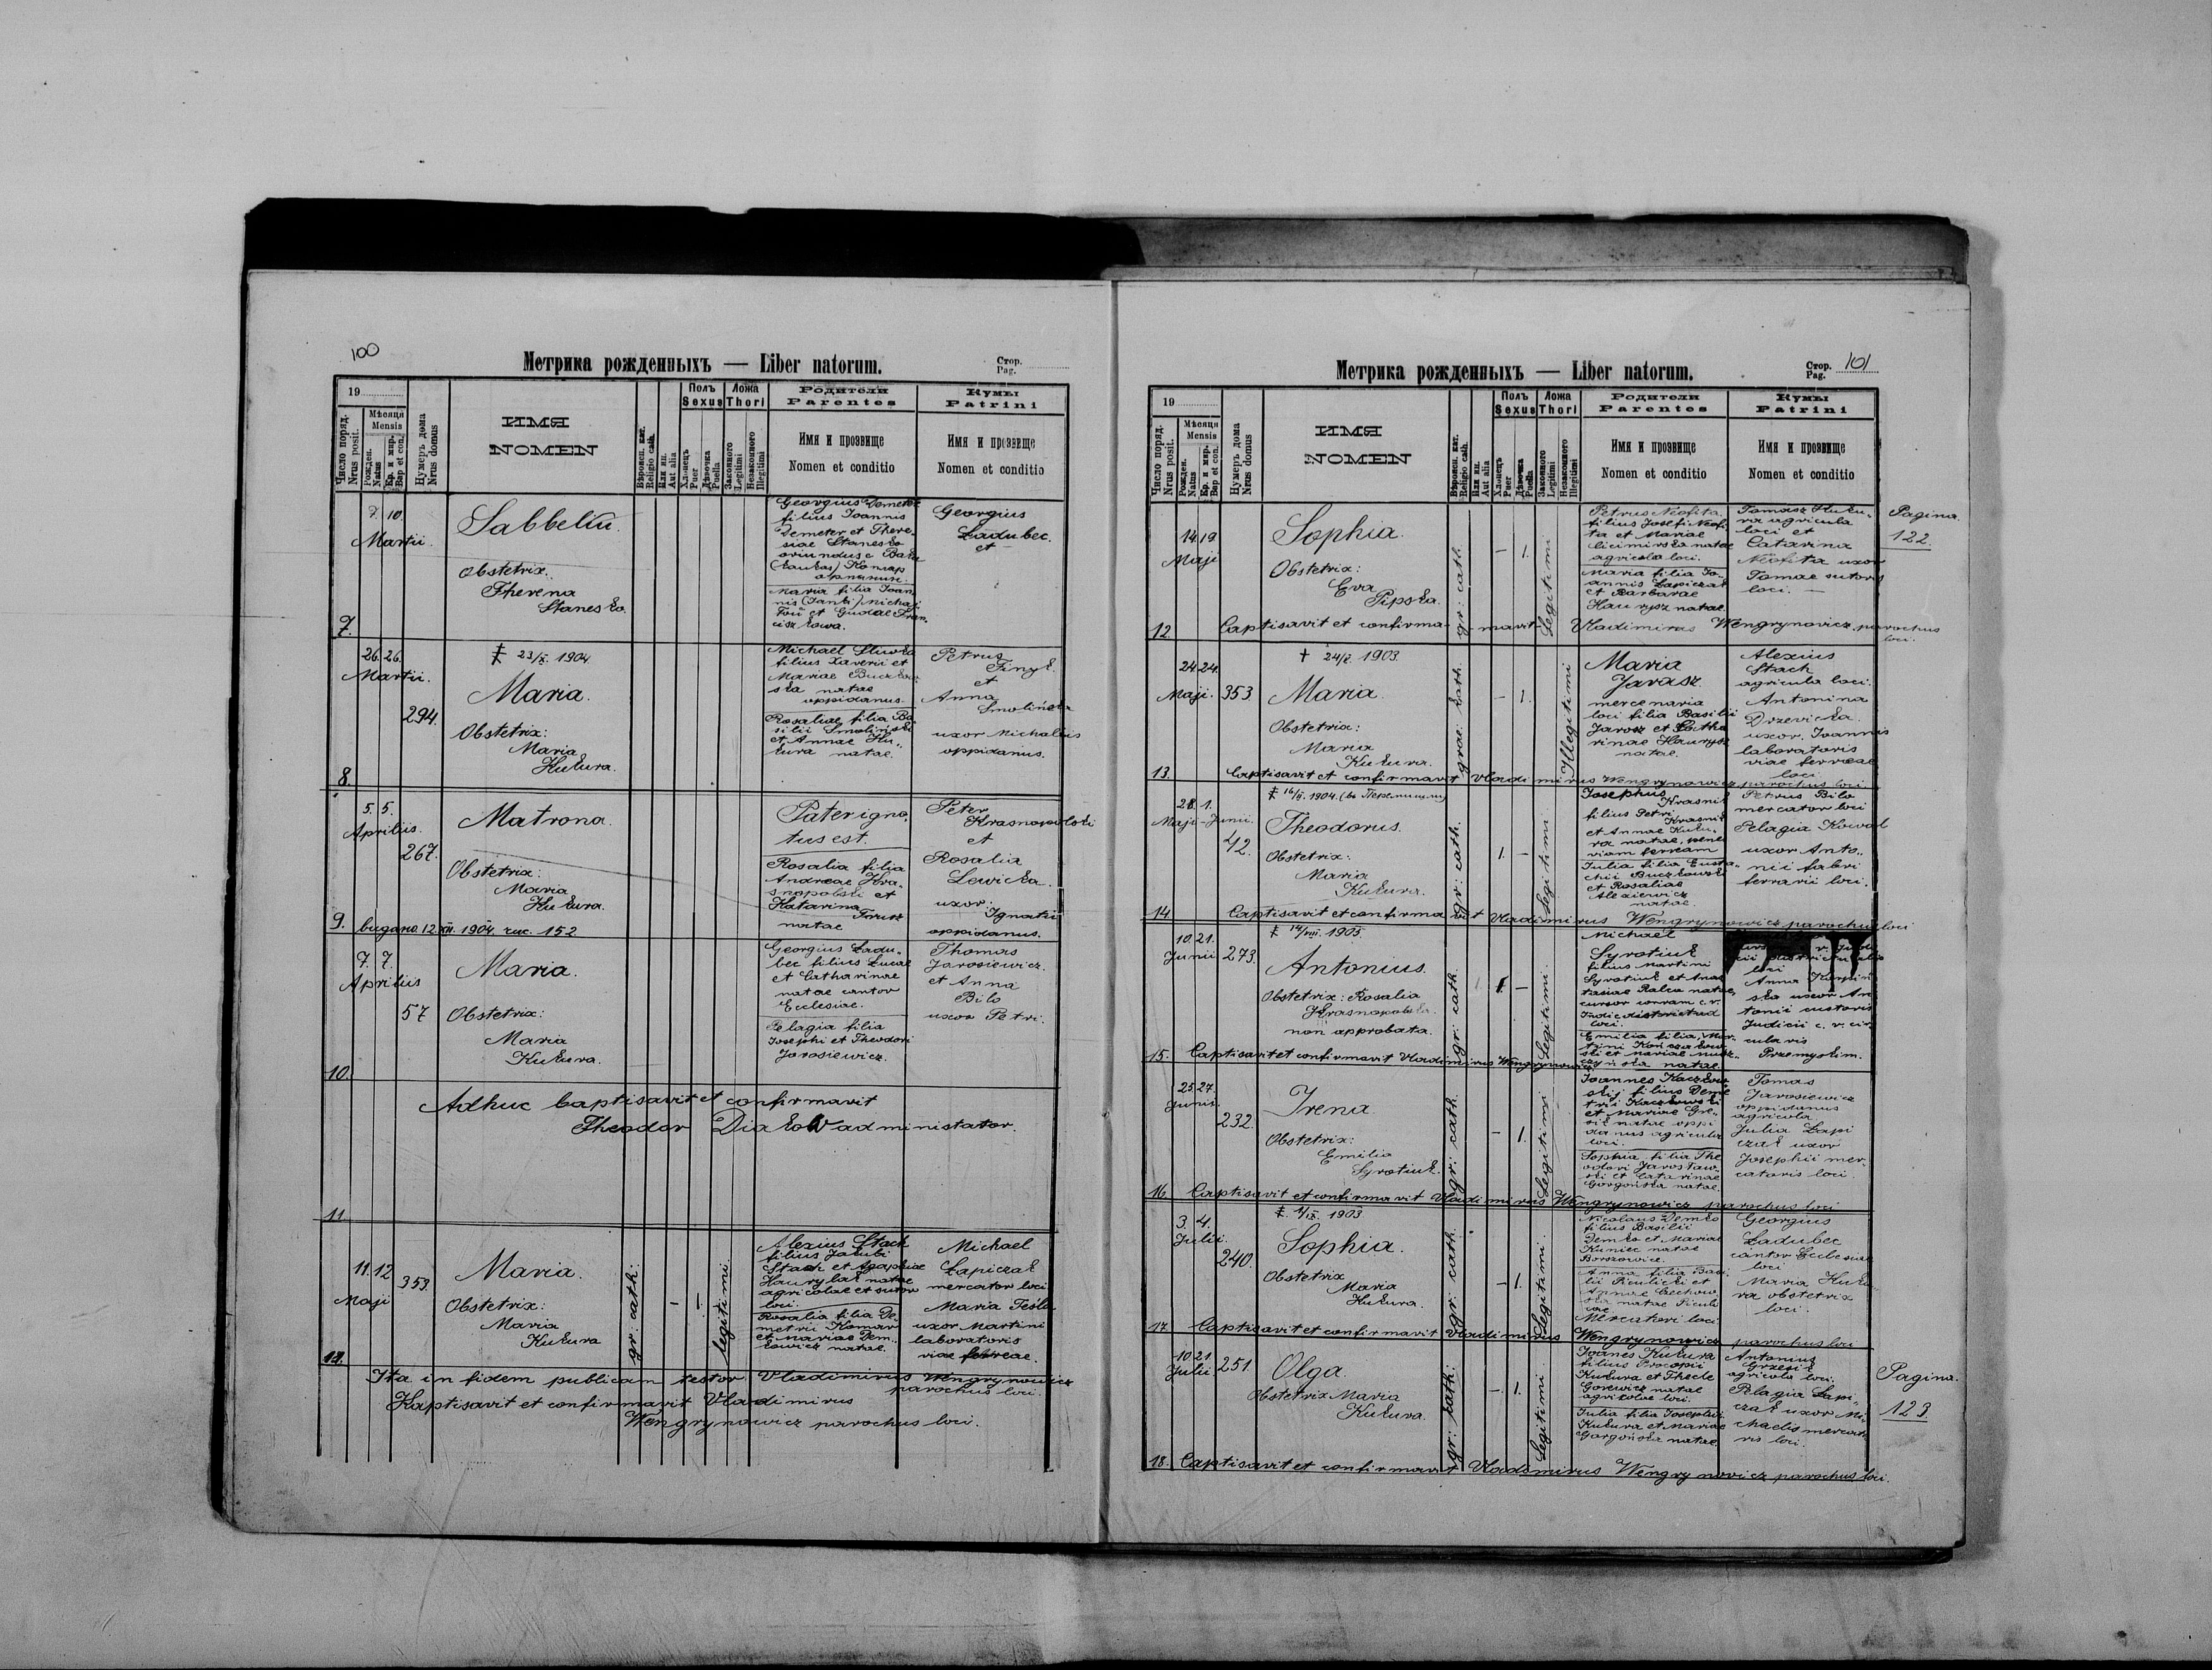 100
Метрика рожденныхъ — Liber natorum.
Стор.
Pag.
19
Число поряд.
Nrus posit.
Мѣсяця
Mensis
Рожден.
Natus
Кр. и мир.
Bap et con.
Нумеръ дома
Nrus domus
ИМЯ
NOMEN
Вѣроисп. кат.
Religio cath.
Или ин.
Aut alia
Полъ
Sexus
Хлопецъ
Puer
Дѣвочка
Puella
Ложа
Thori
Законного
Legitimi
Незаконного
Illegitimi
Родители
Parentes
Имя и прозвище
Nomen et conditio
Кумы
Patrini
Имя и прозвище
Nomen et conditio
7. 10.
Martii.
Sabbeliu.
Obstetrix.
Therena
Stanesko.
Georgius Demeter
filius Joannis
Demeter et There-
siae Stanesko
Maria filia Joan-
nis
Georgius
Ladubec.
et
7.
26. 26.
Martii.
294.
23/X. 1904
Maria.
Obstetrix:
Maria
Kukura.
Michael Sliwka
filius Xaverii et
Mariae
natae
oppidanus.
Rosaliae filia Ba-
silii Smoliński
et Annae Ku-
kura natae.
Petrus
et
Anna
Smolińska
uxor Michaelis
oppidanus.
8.
5. 5.
Aprilis.
267.
Matrona.
Obstetrix:
Maria
Kukura.
Pater igno-
tus est.
Rosalia filia
Andreae Kra-
snopolski et
Katarina
natae
Peter
Krasnopolski
et
Rosalia
Lewicka.
uxor
Ignatii
oppidanus.
9. 12. XII. 1904. 152
7. 7.
Aprilis
57
Maria.
Obstetrix:
Maria
Kukura.
Georgius Ladu-
bec filius Lucae
et Catharinae
natae cantor
Ecclesiae.
Pelagia filia
Josephi et Theodori
Jarosiewicz.
Thomas
Jarosiewicz.
et Anna
Bilo
uxor Petri.
10.
Adhuc baptisavit et confirmavit
Theodor Diakow administator.
11.
11. 12
Maji
353.
Maria.
Obstetrix:
Maria
Kukura
gr: cath:
legitimi.
Alexius Stach
filius Jakubi
Stach et Agaphiae
natae
agricolae et sutor
loci.
Rosalia filia De-
metrii Komar
et Mariae Dem-
kowicz natae.
Michael
Łapiczak
mercator loci
Maria Tesla
uxor Martini
laboratoris
viae ferreae.
12.
Ita in fidem publicam testor. Vladimirus Wengrynowicz
parochus loci.
Baptisavit et confirmavit Vladimirus
Wengrynowicz parochus loci.
Метрика рожденныхъ — Liber natorum.
Стор.
Pag. 101
19
Число поряд.
Nrus posit.
Мѣсяця
Mensis
Рожден.
Natus
Кр. и мир.
Bap et con.
Нумеръ дома
Nrus domus
ИМЯ
NOMEN
Вѣроисп. кат.
Religio cath.
Или ин.
Aut alia
Полъ
Sexus
Хлопецъ
Puer
Дѣвочка
Puella
Ложа
Thori
Законного
Legitimi
Незаконного
Illegitimi
Родители
Parentes
Имя и прозвище
Nomen et conditio
Кумы
Patrini
Имя и прозвище
Nomen et conditio
14 19
Maji
Sophia.
Obstetrix:
Eva
Pipska.
gr: cath.
– 1.
Legitimi
Petrus Neofita
filius Josefi Neofi-
ta et Mariae
natae
agricola loci.
Maria filia Jo-
annis Łapiczak
et Barbarae
Haurysz natae.
Tomasz Kuku-
ra agricola
loci et
Catarina
Neofita uxor
Tomae sutoris
loci. —
Pagina
122.
12 Baptisavit et confirma- mavit Vladimirus Wengrynovicz parochus
loci.
24 24.
Maji.
353
† 24/X. 1903.
Maria.
Obstetrix:
Maria
Kukura.
grae: kath.
– 1.
Illegitimi
Maria
Jarosz.
mercenaria
loci filia Basilii
Jarosz et Catha
rinae Haurysz
natae.
Alexius
Stach
agricola loci.
Antonina
Drzevicka.
uxor. Joannis
laboratoris
viae ferreae
loci.
13. Baptisavit et confirmavit Vladimirus Wengrynowicz parochus loci.
28. 1.
Maji - Junii.
42.
1904. (въ Перемишли)
Theodorus.
Obstetrix:
Maria
Kukura.
gr: cath.
1. –
Legitimi.
Josephus
Krasnik
filius Petri
Krasnik
et Annae Kuku-
ra natae,
Julia filia Eusta-
chii Buczkowski
et Rosaliae
natae.
Petrus Bilo
mercator loci
Pelagia Kowal
uxor Anto-
nii fabri
ferrarii loci.
14. Baptisavit et confirmavit Vladimirus Wengrynowicz parochus loci
10. 21.
Junii
273.
14/VIII. 1903.
Antonius.
Obstetrix: Rosalia
Krasnopolska.
non approbata.
gr: cath.
1. –
Legitimi.
Michael
Syrotiuk
filius Martini
Syrotiuk et Anas
tasiae natae,
loci.
Emilia filia Mar-
tini
natae.
loci
Anna
uxor An
tonii custoris
Judicii c. r. cir-
cularis
Przemyślim.
15. Baptisavit et confirmavit Vladimirus Wengrynowicz
25 27.
Junii.
232.
Irena
Obstetrix:
Emilia
Syrotiuk.
gr: cath.
– 1.
Legitimi
Joannes Kaczkow-
skij filius Deme
trii Kaczkowski
et Mariae Gre-
sik natae oppi
danus agricola
loci.
Sophia filia The
odori Jarosław-
ski et Catarinae
Gorgońska natae.
Tomas
Jarosiewicz
oppidanus
agricola
Julia Łapi
czak uxor
Josephii mer-
catoris loci
16. Baptisavit et confirmavit Vladimirus Wengrynowicz parochus loci
3. 4.
Julii
240.
1903
Sophia.
Obstetrix
Maria
Kukura.
gr: cath.
– 1.
Legitimi.
Nicolaus Demko
filius Basilii
Demko et Mariae
Kuniec natae
Anna filia Basi-
lii Piculicki et
Annae
Mercatori loci
Georgius
Ladubec
cantor Ecclesiae
loci
Maria Kuku
ra obstetrix
loci.
17. Baptisavit et confirmavit Vladimirus Wengrynowicz parochus loci
10. 21.
Julii
251.
Olga.
Obstetrix Maria
Kukura.
gr: cath:
– 1.
Legitimi
Joanes Kukura
filius Procopii
Kukura et Thecle
Gorewicz natae
agricolae loci.
Julia filia Josephi
Kukura et Mariae
Gorgońska natae
Antonius
Grzesik
agricola loci.
Pelagia Łapi-
czak uxor Mi-
chaelis mercato
ris loci.
Pagina.
123.
18. Baptisavit et confirmavit Vladimirus Wengrynovicz parochus loci.